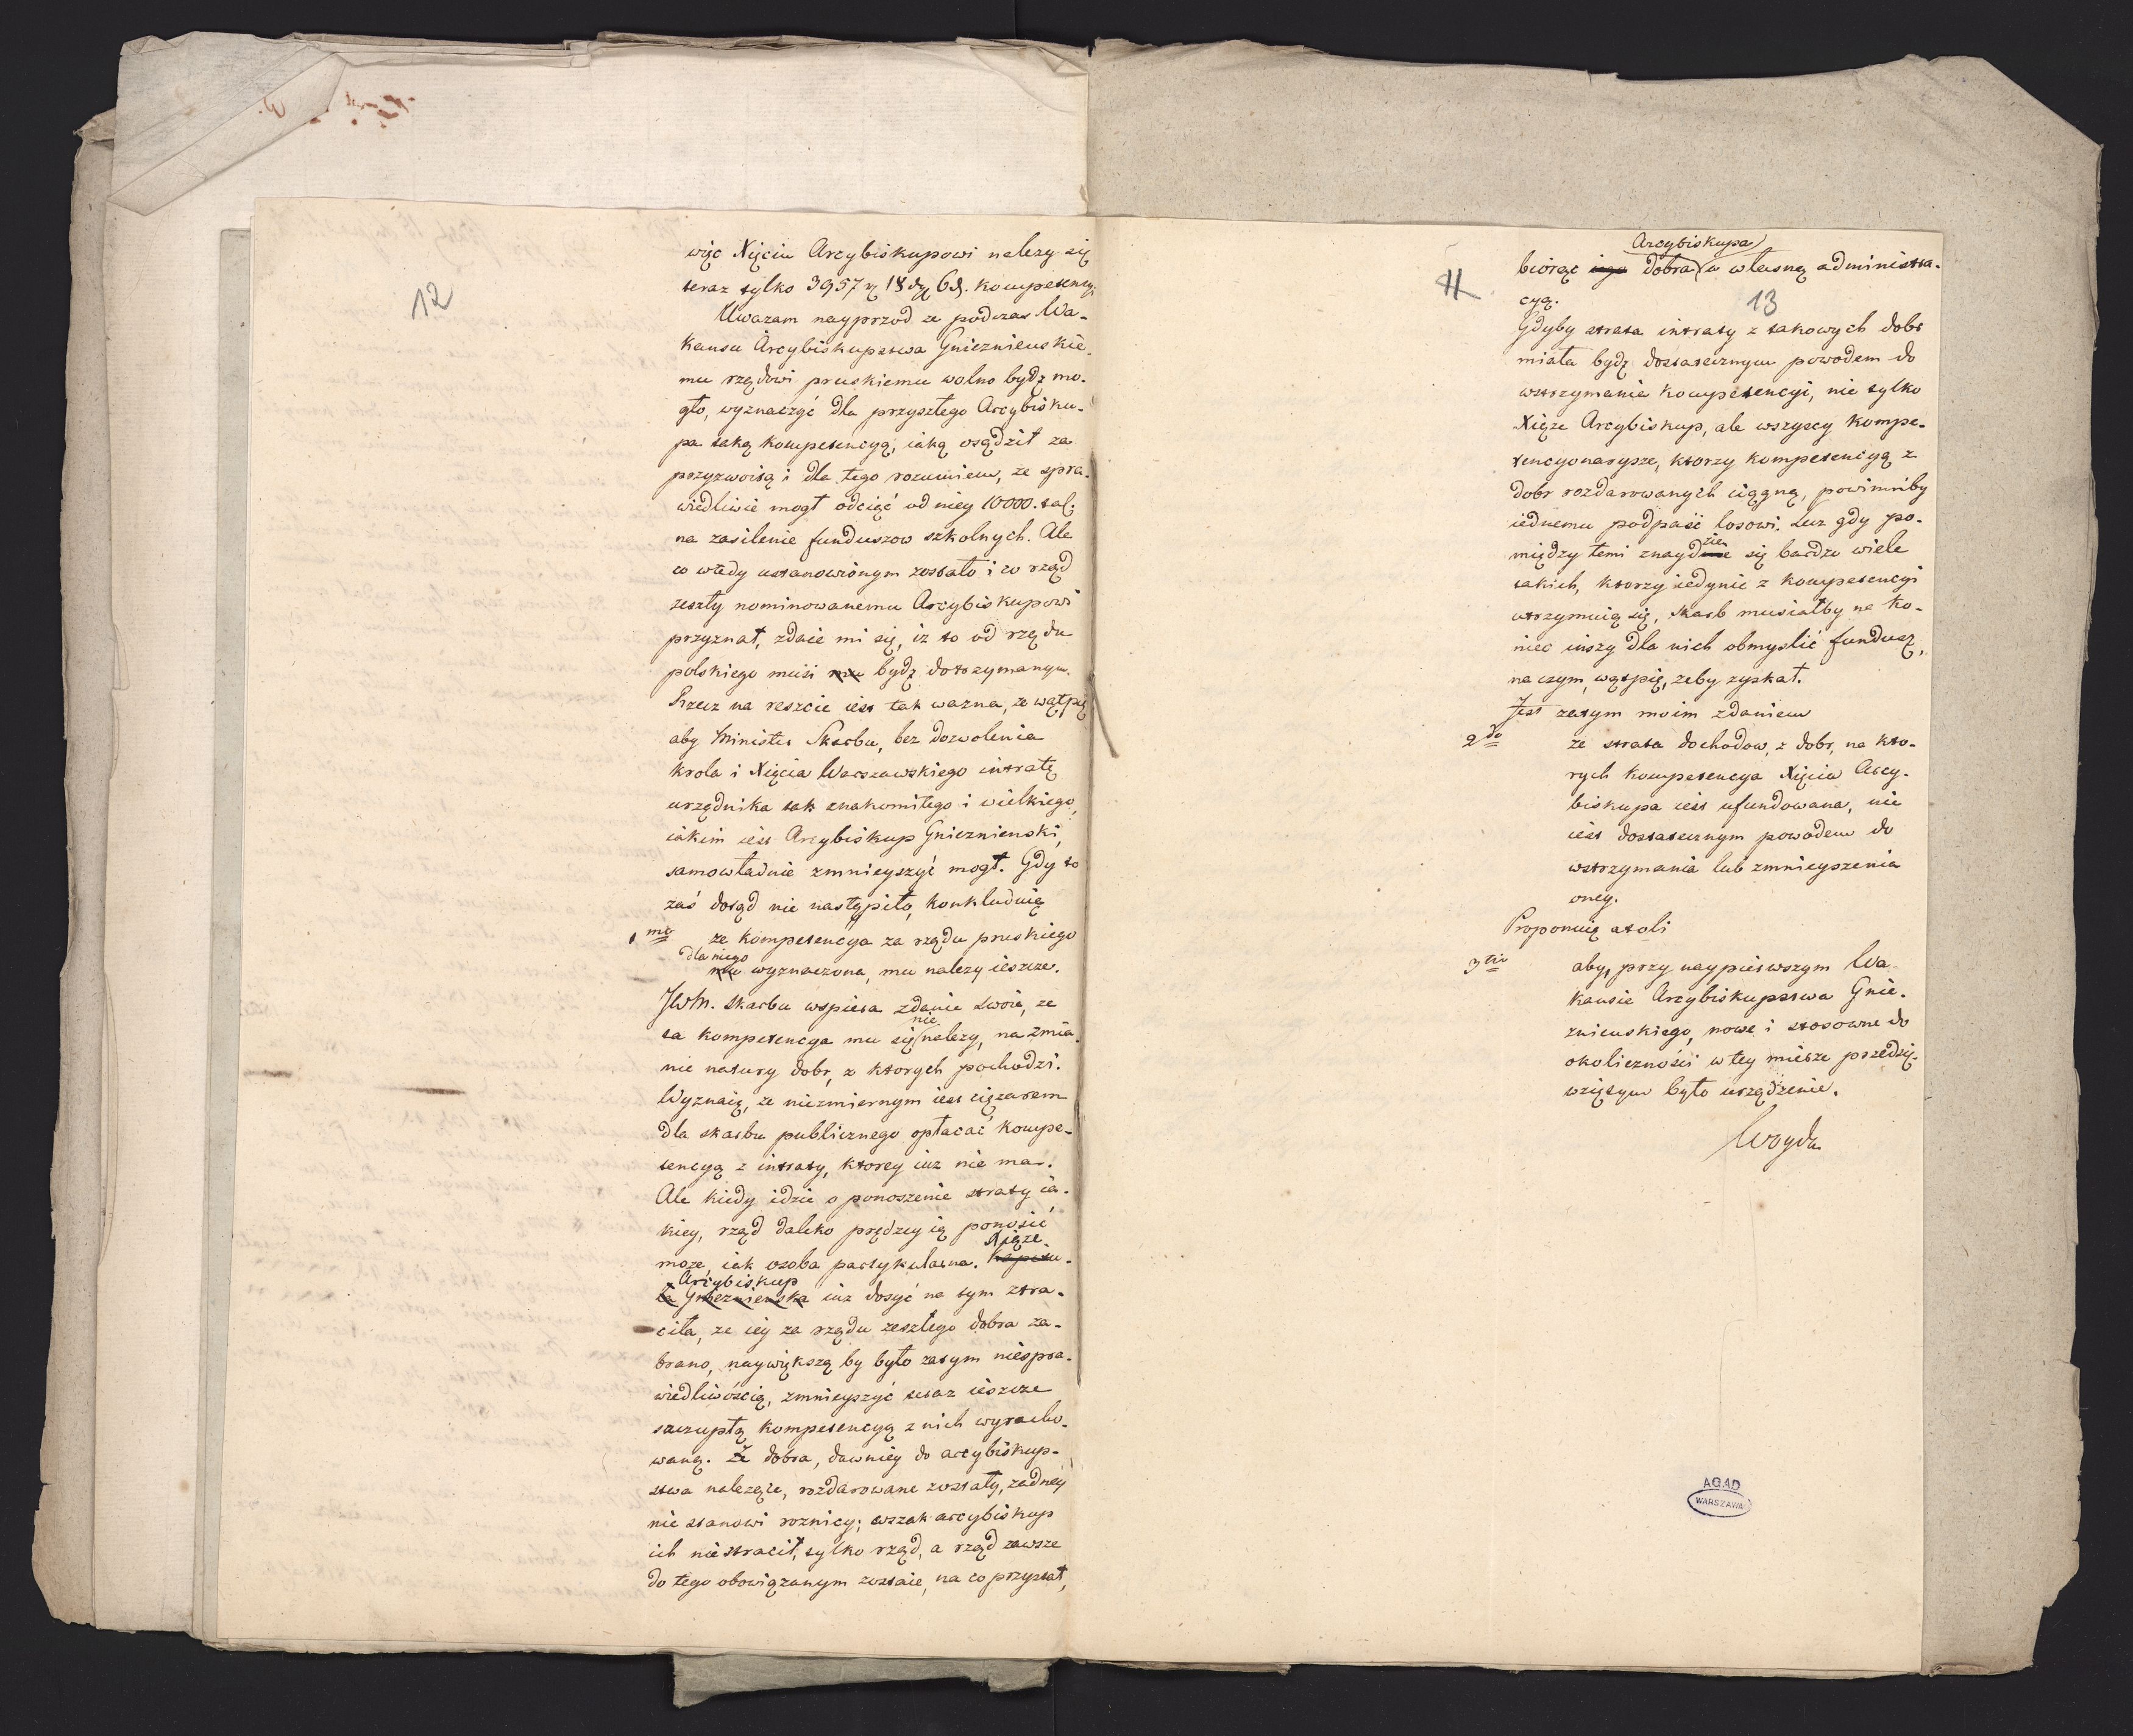 12
więc Xięciu Arcybiskupowi nalezy się
teraz tylko 3957 18 6 kompetencyi
Uwazam nayprzod ze podczas Wa-
kansu Arcybiskupstwa Gnieznienskie-
mu rządowi pruskiemu wolno bydz mo-
gło, wyznaczyć dla przyszłego Arcybisku-
pa taką kompetencyą, iaką osądził za
przyzwoitą i dla tego rozumiem, ze spra-
wiedliwie mogł odciąć od niey 10000. tal.
na zasilenie funduszow szkolnych. Ale
co wtedy ustanowionym zostało i co rząd
zeszły nominowanemu Arcybiskupowi
przyznał, zdaie mi się, iz to od rządu
polskiego musi mu bydz dotrzymanym.
Rzecz na reszcie iest tak wazna, ze wątpię
aby Minister Skarbu, bez dozwolenia
krola i Xięcia Warszawskiego intratę
urzędnika tak znakomitego i wielkiego,
iakim iest Arcybiskup Gnieznienski,
samowładnie zmnieyszyć mogł. Gdy to
zaś dotąd nie nastąpiło, konkluduię
1mo ze kompetencya za rządu pruskiego
dla niego
mu wyznaczona, mu nalezy ieszcze.
JWM. Skarbu wspiera zdanie swoie, ze
nie
ta kompetencya mu się nalezy, na zmia-
nie natury dobr, z ktorych pochodzi.
Wyznaię, ze niezmiernym iest cięzarem
dla skarbu publicznego opłacać kompe-
tencyą z intraty, ktorey iuz nie ma.
Ale kiedy idzie o ponoszenie straty ia-
kiey, rząd daleko prędzey ią ponosić
Xiąze
moze, iak osoba partykularna. Kapitu-
Arcybiskup
ła Gnieznienska iuz dosyć na tym stra-
ciła, ze iey za rządu zeszłego dobra za-
brano, naywiększą by było zatym niespra-
wiedliwością, zmnieyszyć teraz ieszcze
szczupłą kompetencyą z nich wyracho-
waną. Że dobra, dawniey do arcybiskup-
stwa nalezące, rozdarowane zostały, zadney
nie stanowi roznicy; wszak arcybiskup
ich nie stracił, tylko rząd, a rząd zawsze
do tego obowiązanym zostaie, na co przystał,
11
13
Arcybiskupa
biorąc iego dobra w własną administra-
cyą.
Gdyby strata intraty z takowych dobr
miała bydz dostatecznym powodem do
wstrzymania kompetencyi, nie tylko
Xiąze Arcybiskup, ale wszyscy kompe-
tencyonaryusze, ktorzy kompetencyą z
dobr rozdarowanych ciągną, powinniby
iednemu podpaść losowi. Lecz gdy po-
między temi znaydzie się bardzo wiele
takich, ktorzy iedynie z kompetencyi
utrzymuią się, skarb musiałby na ko-
niec inszy dla nich obmyslić fundusz,
na czym, wątpię, zeby zyskał.
Jest zatym moim zdaniem
2do ze strata dochodow, z dobr, na kto-
rych kompetencya Xięcia Arcy-
biskupa iest ufundowana, nie
iest dostatecznym powodem do
wstrzymania lub zmnieyszenia
oney.
Proponuię atoli
3tio aby, przy naypierwszym Wa-
kansie Arcybiskupstwa Gnie-
znienskiego, nowe i stosowne do
okoliczności w tey mierze przedsię-
wziętym było urządzenie.
Woyda
AGAD
WARSZAWA